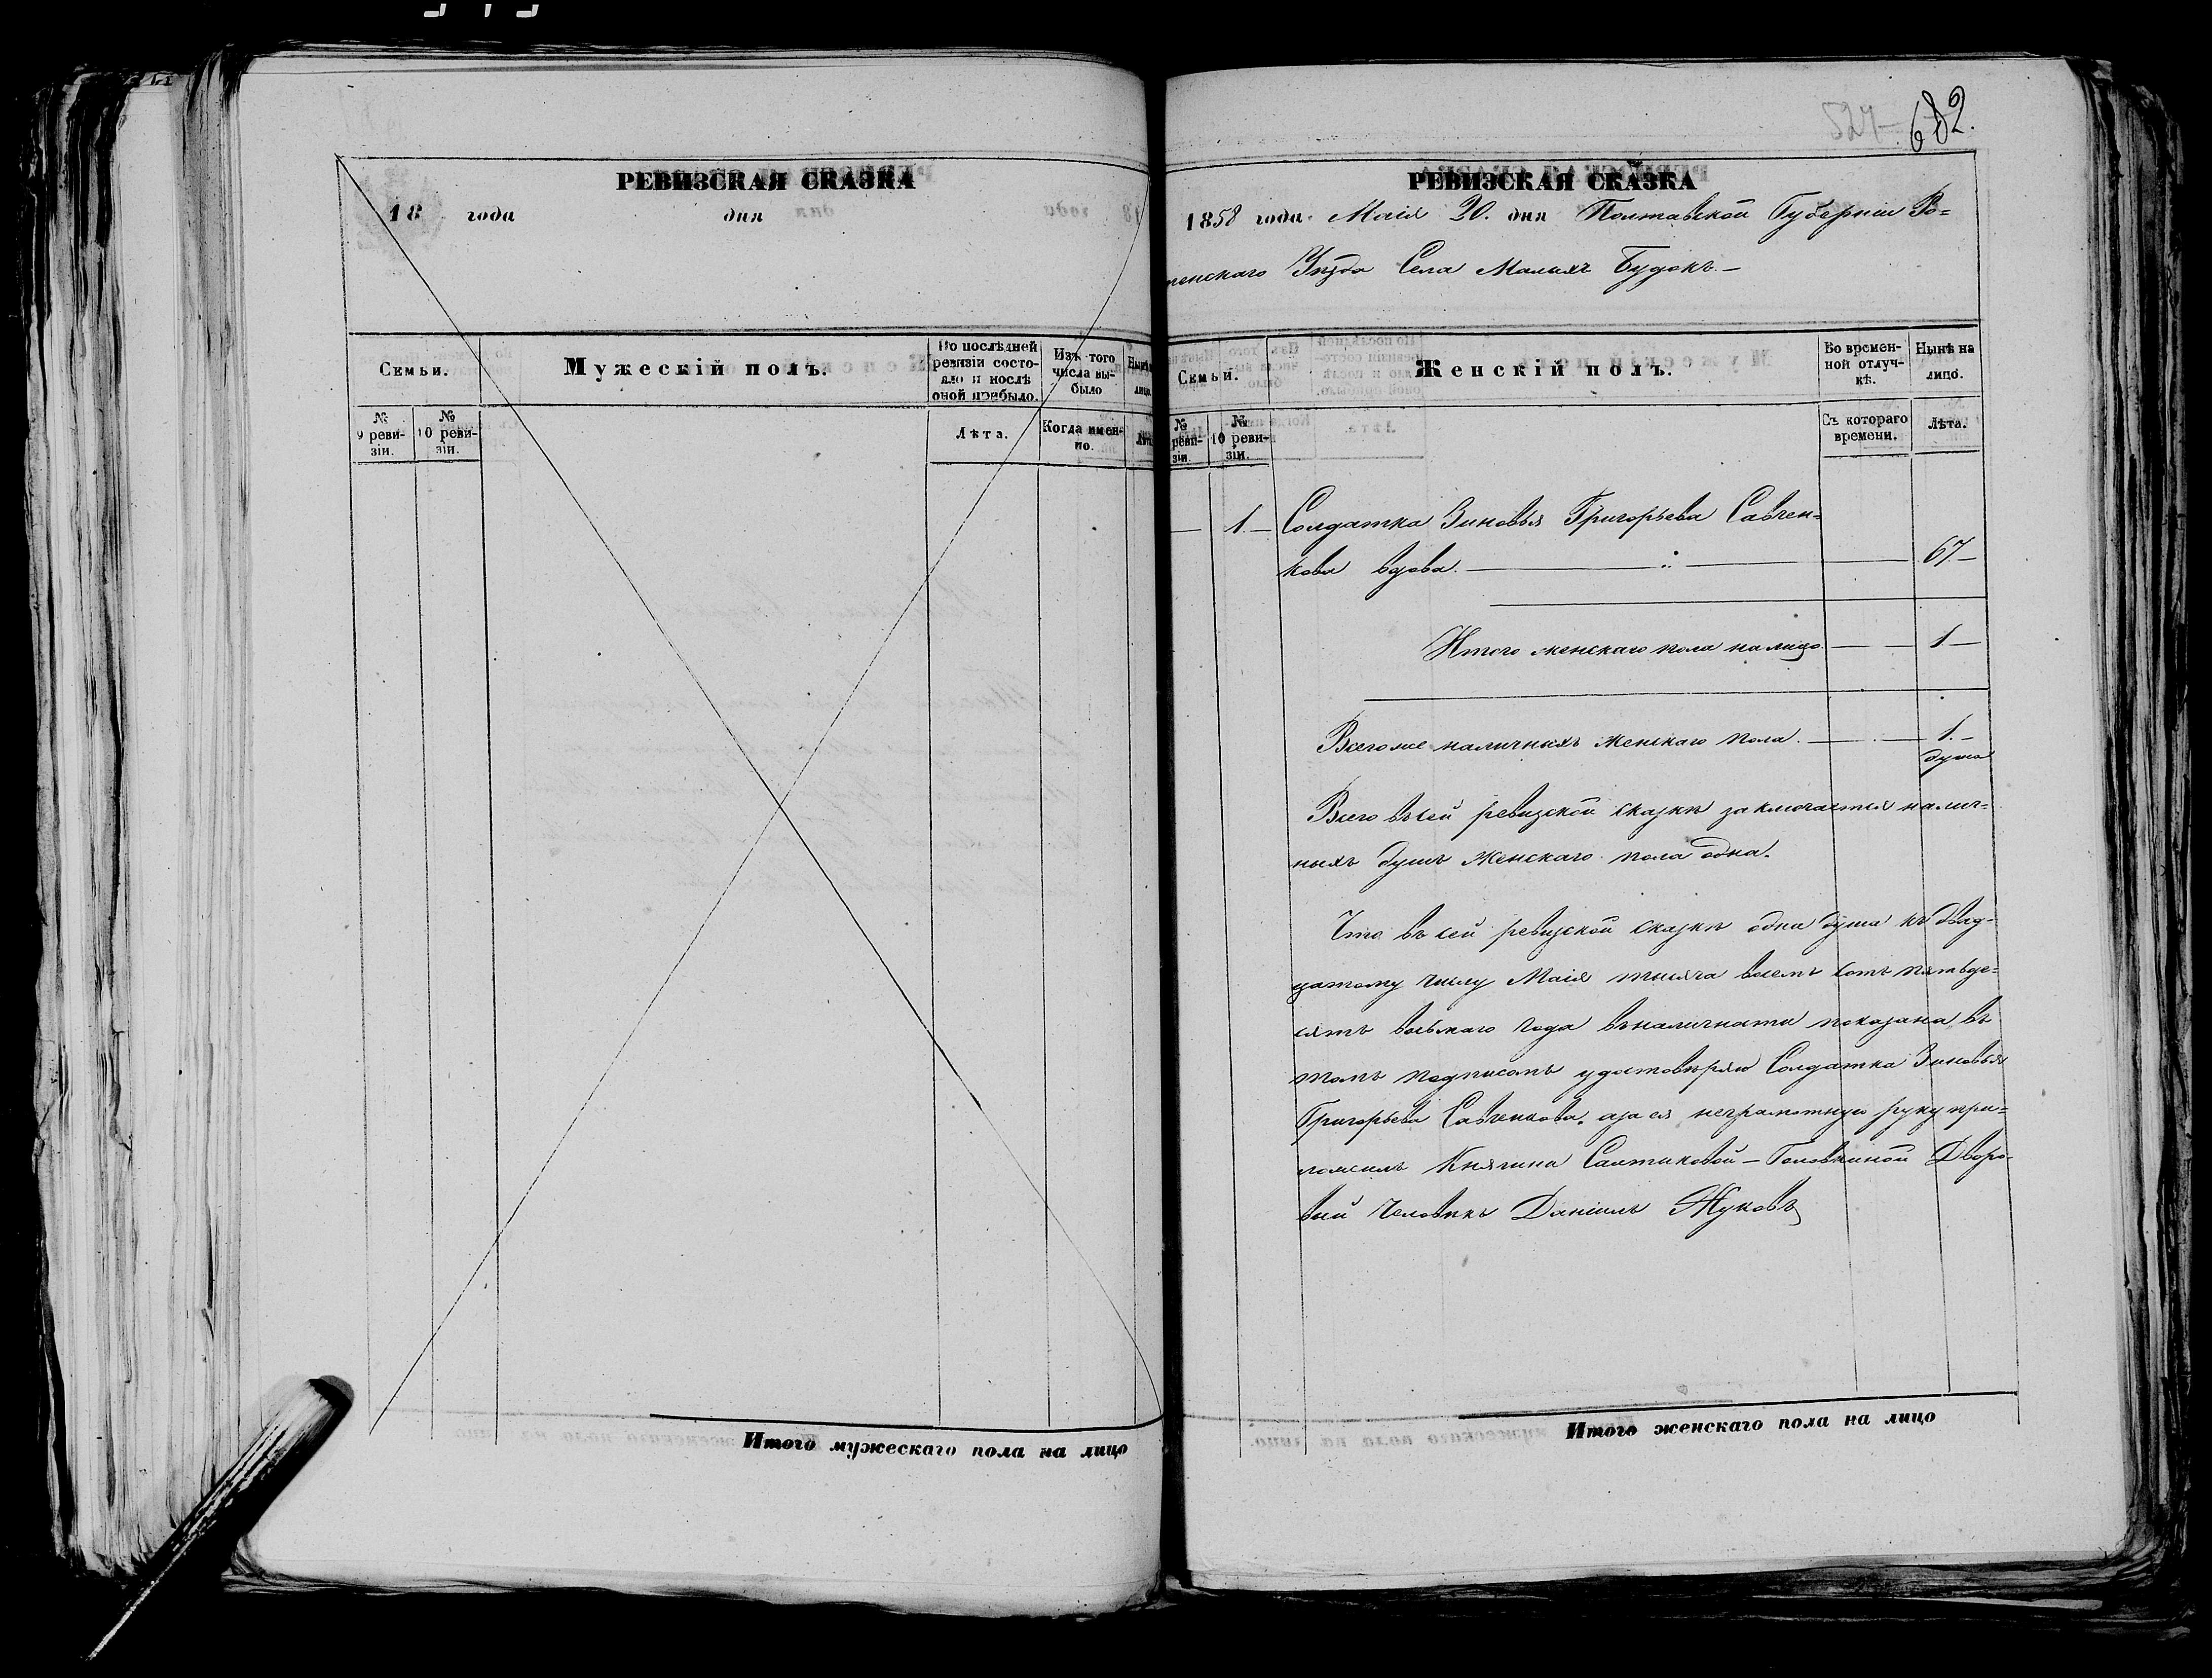 527-
682.
РЕВИЗСКАЯ СКАЗКА
18 года дня
Семьи.
Мужескій полъ.
По послѣдней ревизіи состояло и послѣ оной прибыло.
Изъ того числа выбыло
№ 9 ревизіи.
№ 10 ревизіи.
Лѣта.
Когда именно.
Итого мужескаго пола на лицо
РЕВИЗСКАЯ СКАЗКА
1858 года Маія 20. дня Полтавской Губерніи Ро=
менскаго Уѣзда Села Малыхъ Будокъ.—
Семьи.
Женскій полъ.
Во временной отлучкѣ.
Нынѣ на лицо.
№ ревизіи.
№ 10 ревизіи.
Съ котораго времени.
Лѣта.
— 1.— Солдатка Зиновья Григорьева Савчен=
кова вдова. — 67.—
Итого женскаго пола на лицо. — 1—
Всего же наличныхъ женскаго пола. — 1.—
душа
Всего въ сей ревизской сказкѣ заключается налич=
ныхъ душъ женскаго пола одна.
Что въ сей ревизской сказкѣ одна душа къ двад-
цатому числу Маія тысяча восемь сотъ пятьде=
сятъ восьмаго года въ наличности показана, въ
томъ подписомъ удостовѣряю Солдатка Зиновья
Григорьева Савченкова, а за ея неграмотную руку при=
ложилъ Княгини Салтыковой-Головкиной Дворо-
вый человѣкъ Даніилъ Жуковъ
Итого женскаго пола на лицо